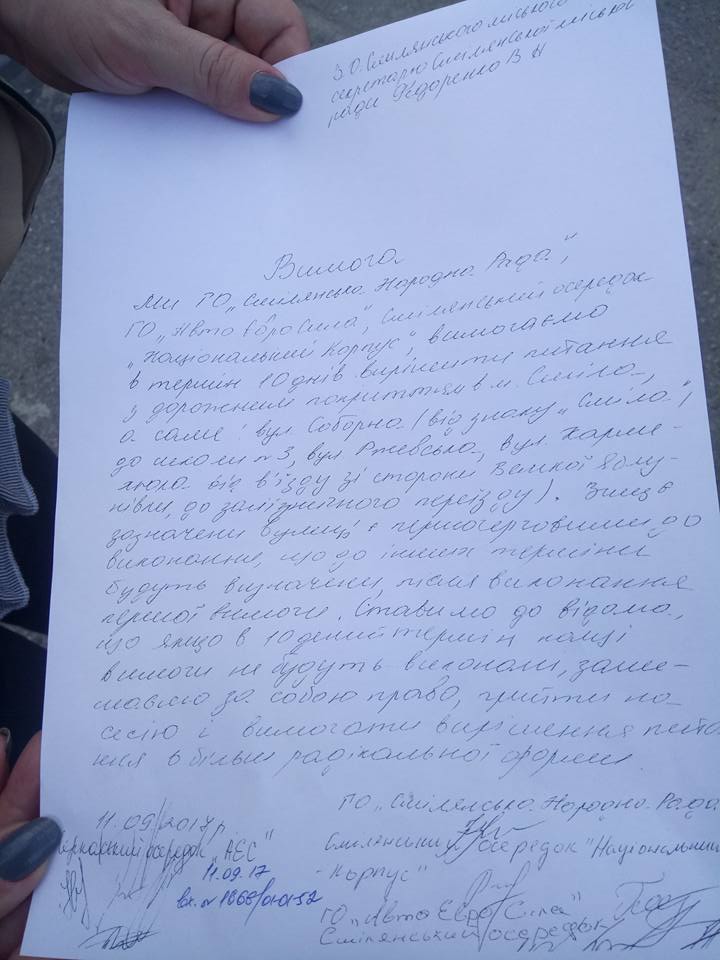 В.О. Смілянського міського
секретарю Смілянської міської
ради Федоренко В Н
Вимога
Ми ГО „Смілянська Народна Рада",
ГО „Авто Євро Сила", Смілянський осередок
„Національний Корпус", вимагаємо
в термін 10 днів вирішити питання
з дорожнім покриттям в м. Сміла,
а саме: вул. Соборна (від знаку „Сміла",
до школи №3, вул Ржевська, вул. Карме-
люка від в'їзду зі сторони Великої Яблу-
нівки, до залізничного переїзду). Вище
зазначені вулиці є першочерговими до
виконання, що до інших терміни
будуть визначені, після виконання
першої вимоги. Ставимо до відома,
що якщо в 10 денний термін наші
вимоги не будуть виконані, зали-
шаємо за собою право, прийти на
сесію і вимагати вирішення пита
ння в більш радікальної форми.
11.09/2017р.
ГО „Смілянська Народна Рада
Черкаський осередок „АЄС"
Смілянський осередок "Національний
11.09.17
Корпус"
вх. № 1868/01-01-52
ГО „Авто Євро Сила"
Смілянський осередок